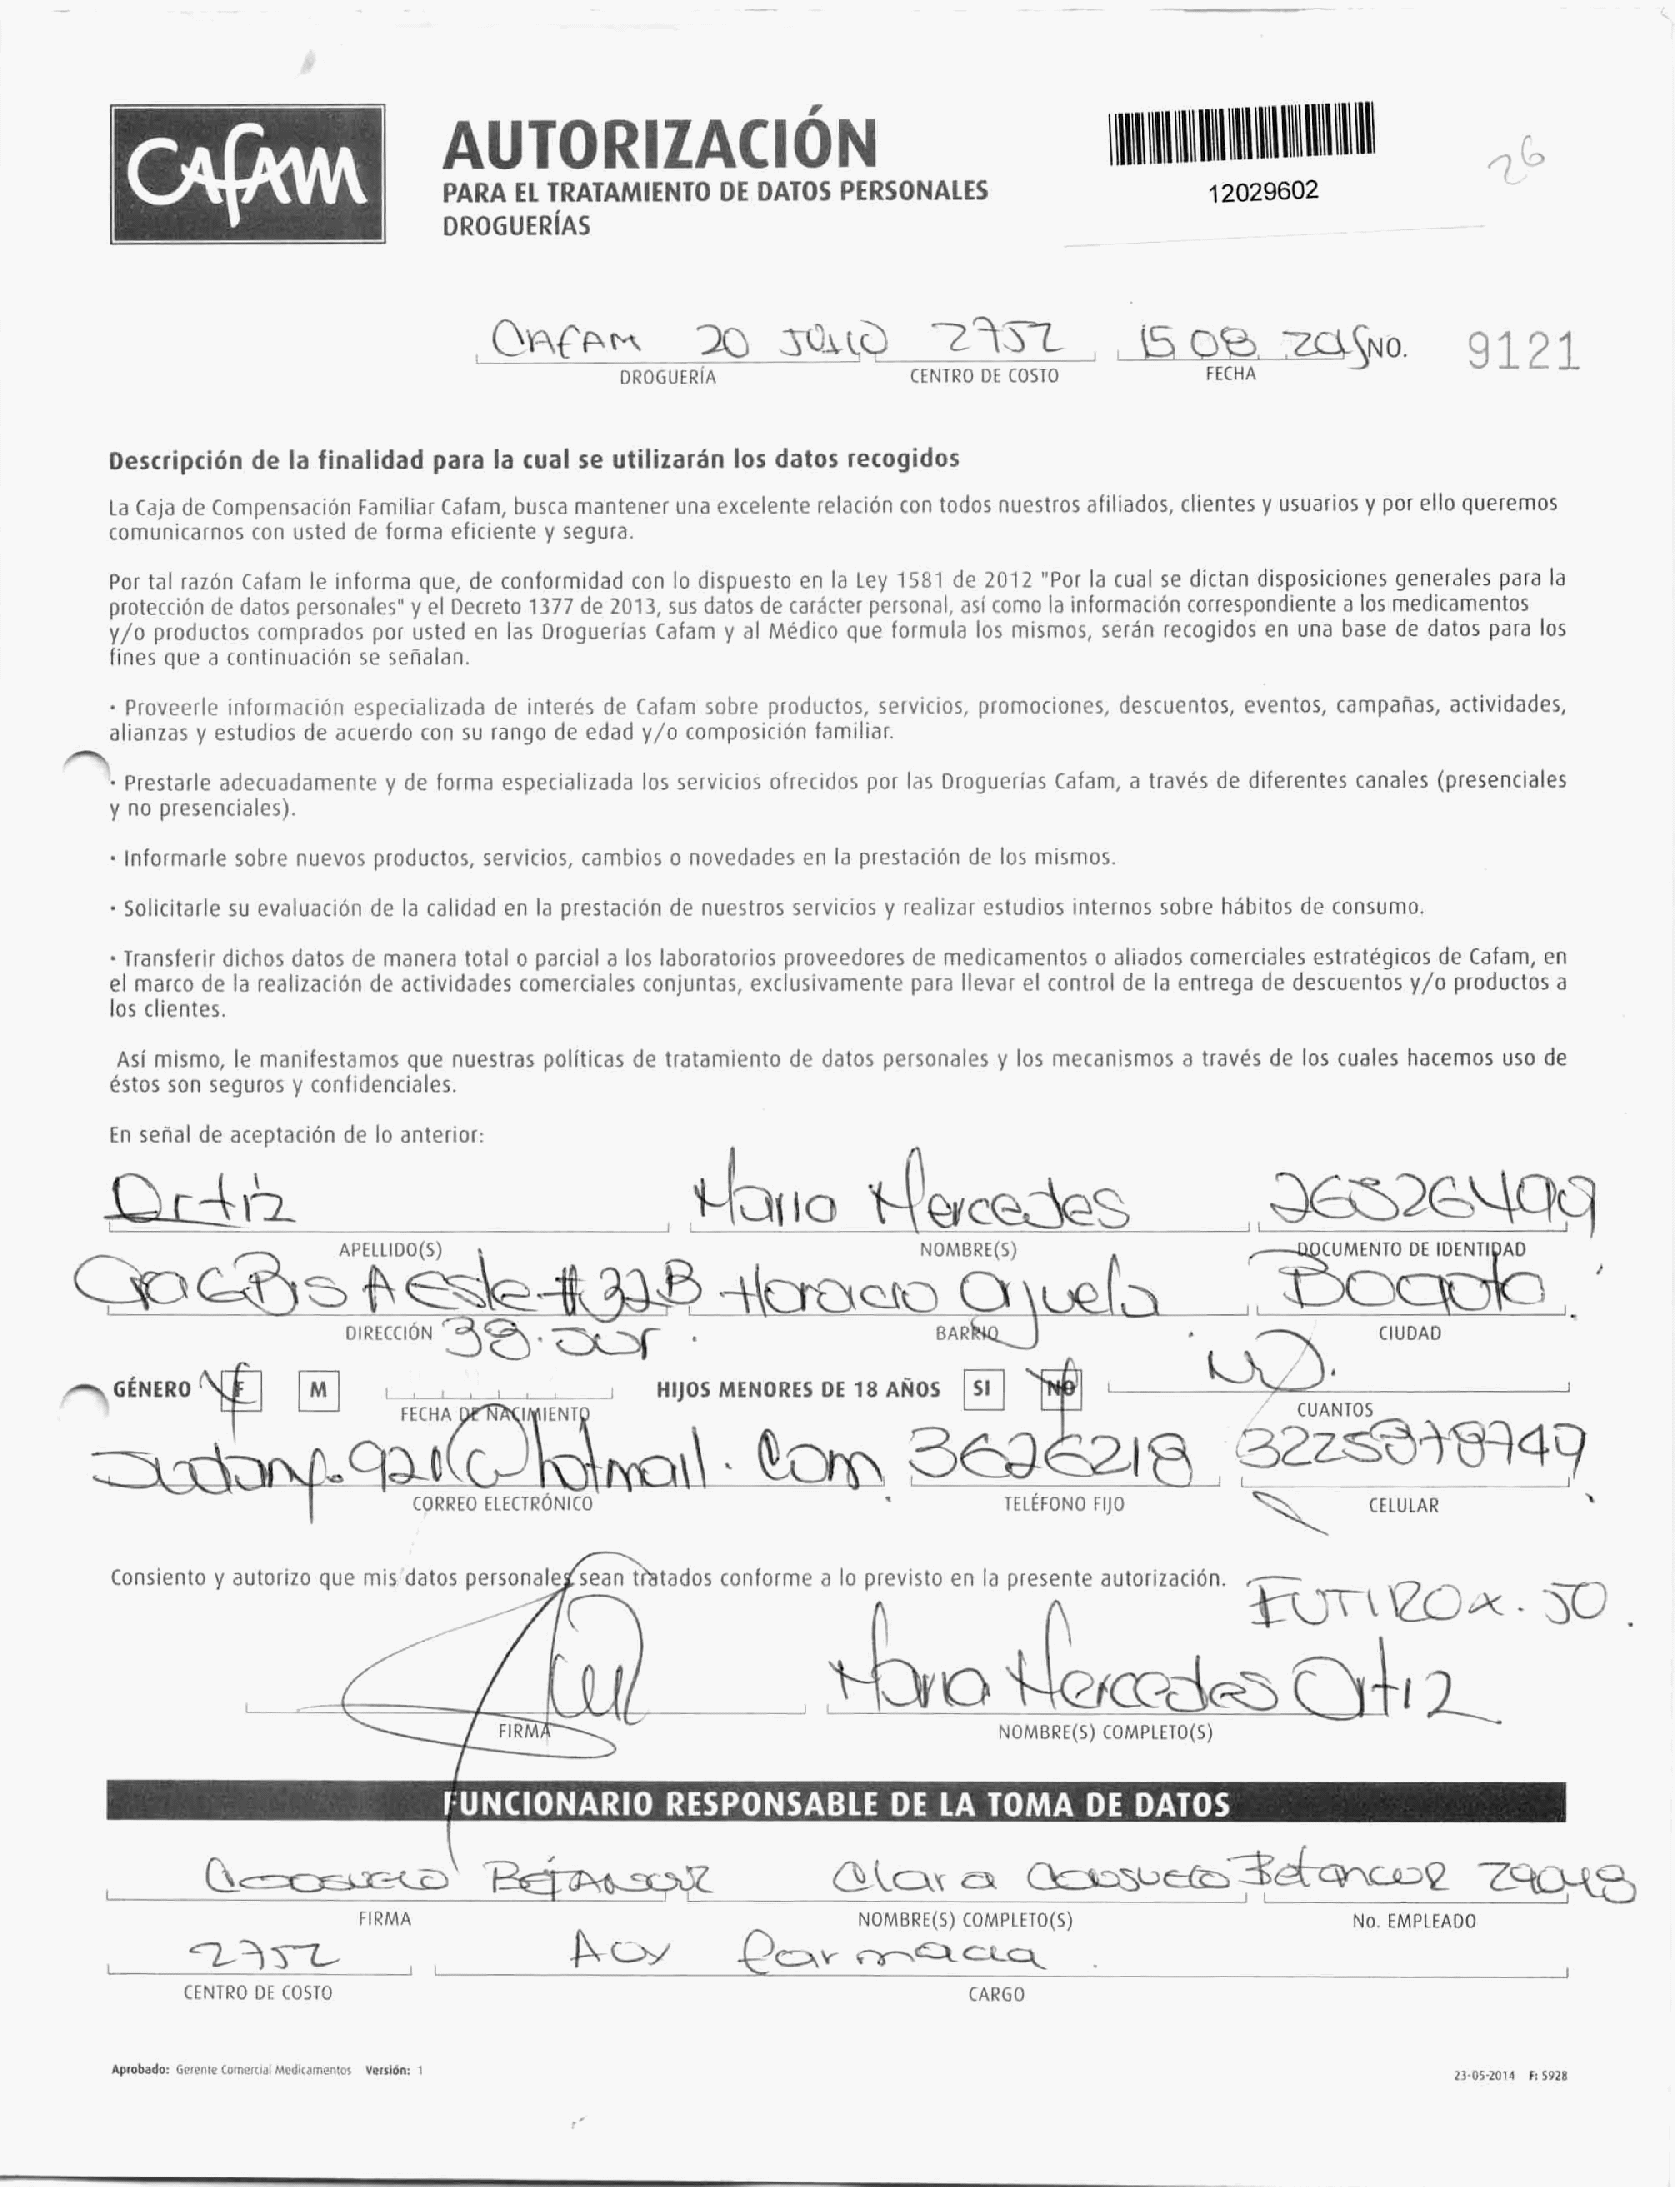 CAFAM
AUTORIZACIÓN
PARA EL TRATAMIENTO DE DATOS PERSONALES
DROGUERÍAS
12029602
26
CAFAM 20 JULIO 2752 15 08 2015 NO. 9121
DROGUERÍA CENTRO DE COSTO FECHA
Descripción de la finalidad para la cual se utilizarán los datos recogidos
La Caja de Compensación Familiar Cafam, busca mantener una excelente relación con todos nuestros afiliados, clientes y usuarios y por ello queremos
comunicarnos con usted de forma eficiente y segura.
Por tal razón Cafam le informa que, de conformidad con lo dispuesto en la Ley 1581 de 2012 "Por la cual se dictan disposiciones generales para la
protección de datos personales" y el Decreto 1377 de 2013, sus datos de carácter personal, así como la información correspondiente a los medicamentos
y/o productos comprados por usted en las Droguerías Cafam y al Médico que formula los mismos, serán recogidos en una base de datos para los
fines que a continuación se señalan.
· Proveerle información especializada de interés de Cafam sobre productos, servicios, promociones, descuentos, eventos, campañas, actividades,
alianzas y estudios de acuerdo con su rango de edad y/o composición familiar.
· Prestarle adecuadamente y de forma especializada los servicios ofrecidos por las Droguerías Cafam, a través de diferentes canales (presenciales
y no presenciales).
· Informarle sobre nuevos productos, servicios, cambios o novedades en la prestación de los mismos.
· Solicitarle su evaluación de la calidad en la prestación de nuestros servicios y realizar estudios internos sobre hábitos de consumo.
· Transferir dichos datos de manera total o parcial a los laboratorios proveedores de medicamentos o aliados comerciales estratégicos de Cafam, en
el marco de la realización de actividades comerciales conjuntas, exclusivamente para llevar el control de la entrega de descuentos y/o productos a
los clientes.
Así mismo, le manifestamos que nuestras políticas de tratamiento de datos personales y los mecanismos a través de los cuales hacemos uso de
éstos son seguros y confidenciales.
En señal de aceptación de lo anterior:
Ortiz Maria Mercedes
APELLIDO(S) NOMBRE(S) DOCUMENTO DE IDENTIDAD
A Este # 32B Horacio Bogota
DIRECCIÓN 38. sur. BARRIO CIUDAD
GÉNERO F M HIJOS MENORES DE 18 AÑOS SI NO
FECHA DE NACIMIENTO CUANTOS
@hotmail.com 3626218
CORREO ELECTRÓNICO TELÉFONO FIJO CELULAR
Consiento y autorizo que mis datos personales sean tratados conforme a lo previsto en la presente autorización.
EUTIROX. 50.
Maria Mercedes Ortiz
FIRMA NOMBRE(S) COMPLETO(S)
FUNCIONARIO RESPONSABLE DE LA TOMA DE DATOS
Consuelo Betancur Clara Consuelo Betancur 29048
FIRMA NOMBRE(S) COMPLETO(S) No. EMPLEADO
2752 Aux farmacia
CENTRO DE COSTO CARGO
Aprobado: Gerente Comercial Medicamentos Versión: 1
23-05-2014 F: 5928